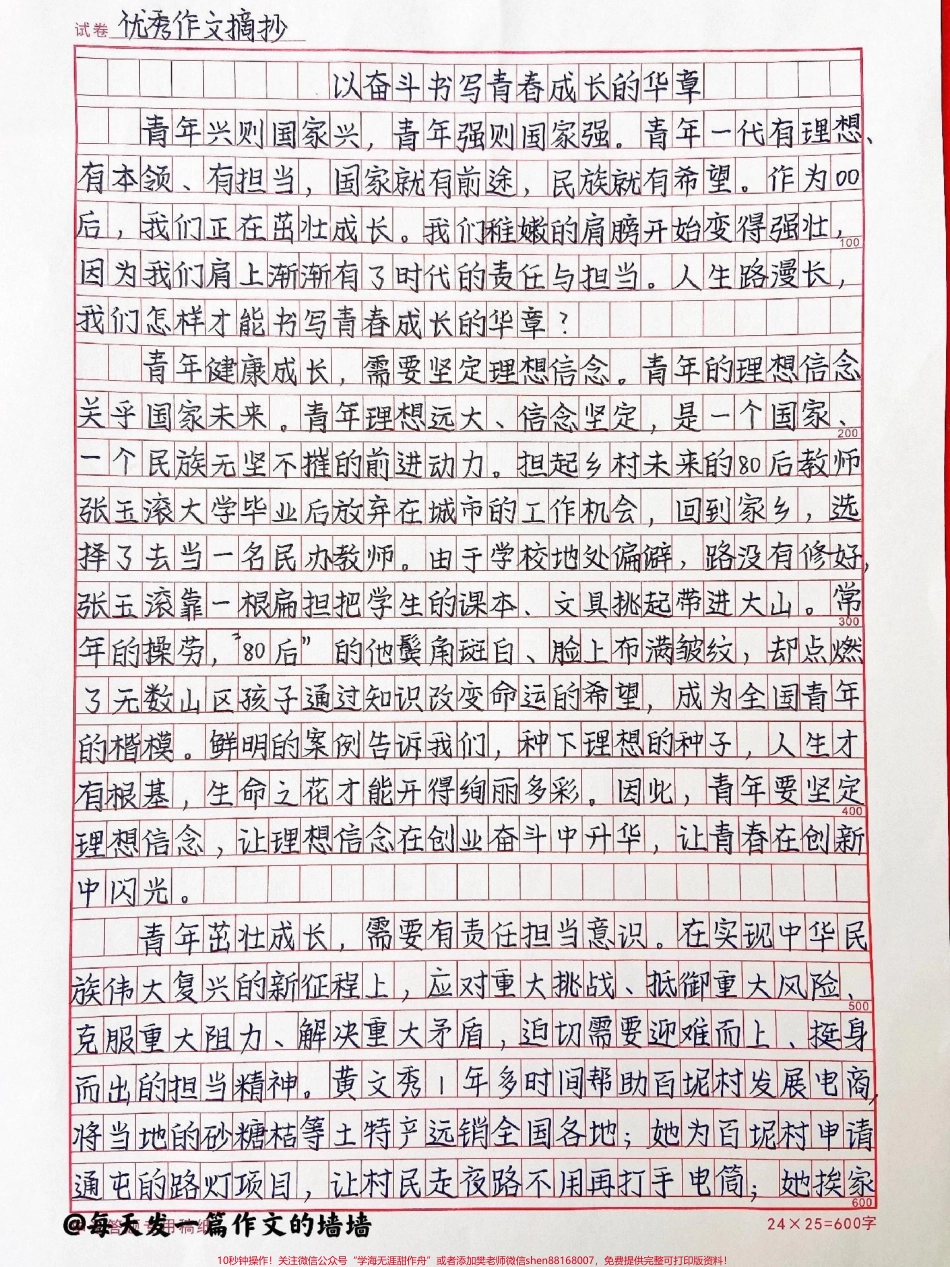 试卷 优秀作文摘抄
以奋斗书写青春成长的华章
青年兴则国家兴，青年强则国家强。青年一代有理想、
有本领、有担当，国家就有前途，民族就有希望。作为00
后，我们正在茁壮成长。我们稚嫩的肩膀开始变得强壮，
100
因为我们肩上渐渐有了时代的责任与担当。人生路漫长，
我们怎样才能书写青春成长的华章？
青年健康成长，需要坚定理想信念。青年的理想信念
关乎国家未来。青年理想远大、信念坚定，是一个国家、
200
一个民族无坚不摧的前进动力。担起乡村未来的80后教师
张玉滚大学毕业后放弃在城市的工作机会，回到家乡，选
择了去当一名民办教师。由于学校地处偏僻，路没有修好，
张玉滚靠一根扁担把学生的课本、文具挑起带进大山。常
300
年的操劳，“80后”的他鬓角斑白、脸上布满皱纹，却点燃
了无数山区孩子通过知识改变命运的希望，成为全国青年
的楷模。鲜明的案例告诉我们，种下理想的种子，人生才
有根基，生命之花才能开得绚丽多彩。因此，青年要坚定
400
理想信念，让理想信念在创业奋斗中升华，让青春在创新
中闪光。
青年茁壮成长，需要有责任担当意识。在实现中华民
族伟大复兴的新征程上，应对重大挑战、抵御重大风险、
500
克服重大阻力、解决重大矛盾，迫切需要迎难而上、挺身
而出的担当精神。黄文秀1年多时间帮助百坭村发展电商，
将当地的砂糖桔等土特产远销全国各地；她为百坭村申请
通屯的路灯项目，让村民走夜路不用再打手电筒；她挨家
600
@每天发一篇作文的墙墙
24×25=600字
10秒钟操作！关注微信公众号“学海无涯甜作舟”或者添加樊老师微信shen88168007，免费提供完整可打印版资料！